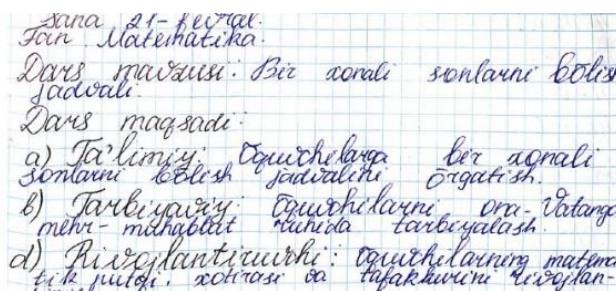 Sana 21-fevral.
Fan Matematika.
Dars mavzusi: Bir xonali sonlarni bõlish
jadvali.
Dars maqsadi:
a) Ta'limiy: Õquvchilarga bir xonali
sonlarni bõlish jadvalini õrgatish.
b) Tarbiyaviy: Õquvchilarni ona-Vatanga
mehr-muhabbat ruhida tarbiyalash.
d) Rivojlantiruvchi: Õquvchilarning matema
tik nutqi, xotirasi va tafakkurini rivojlan-